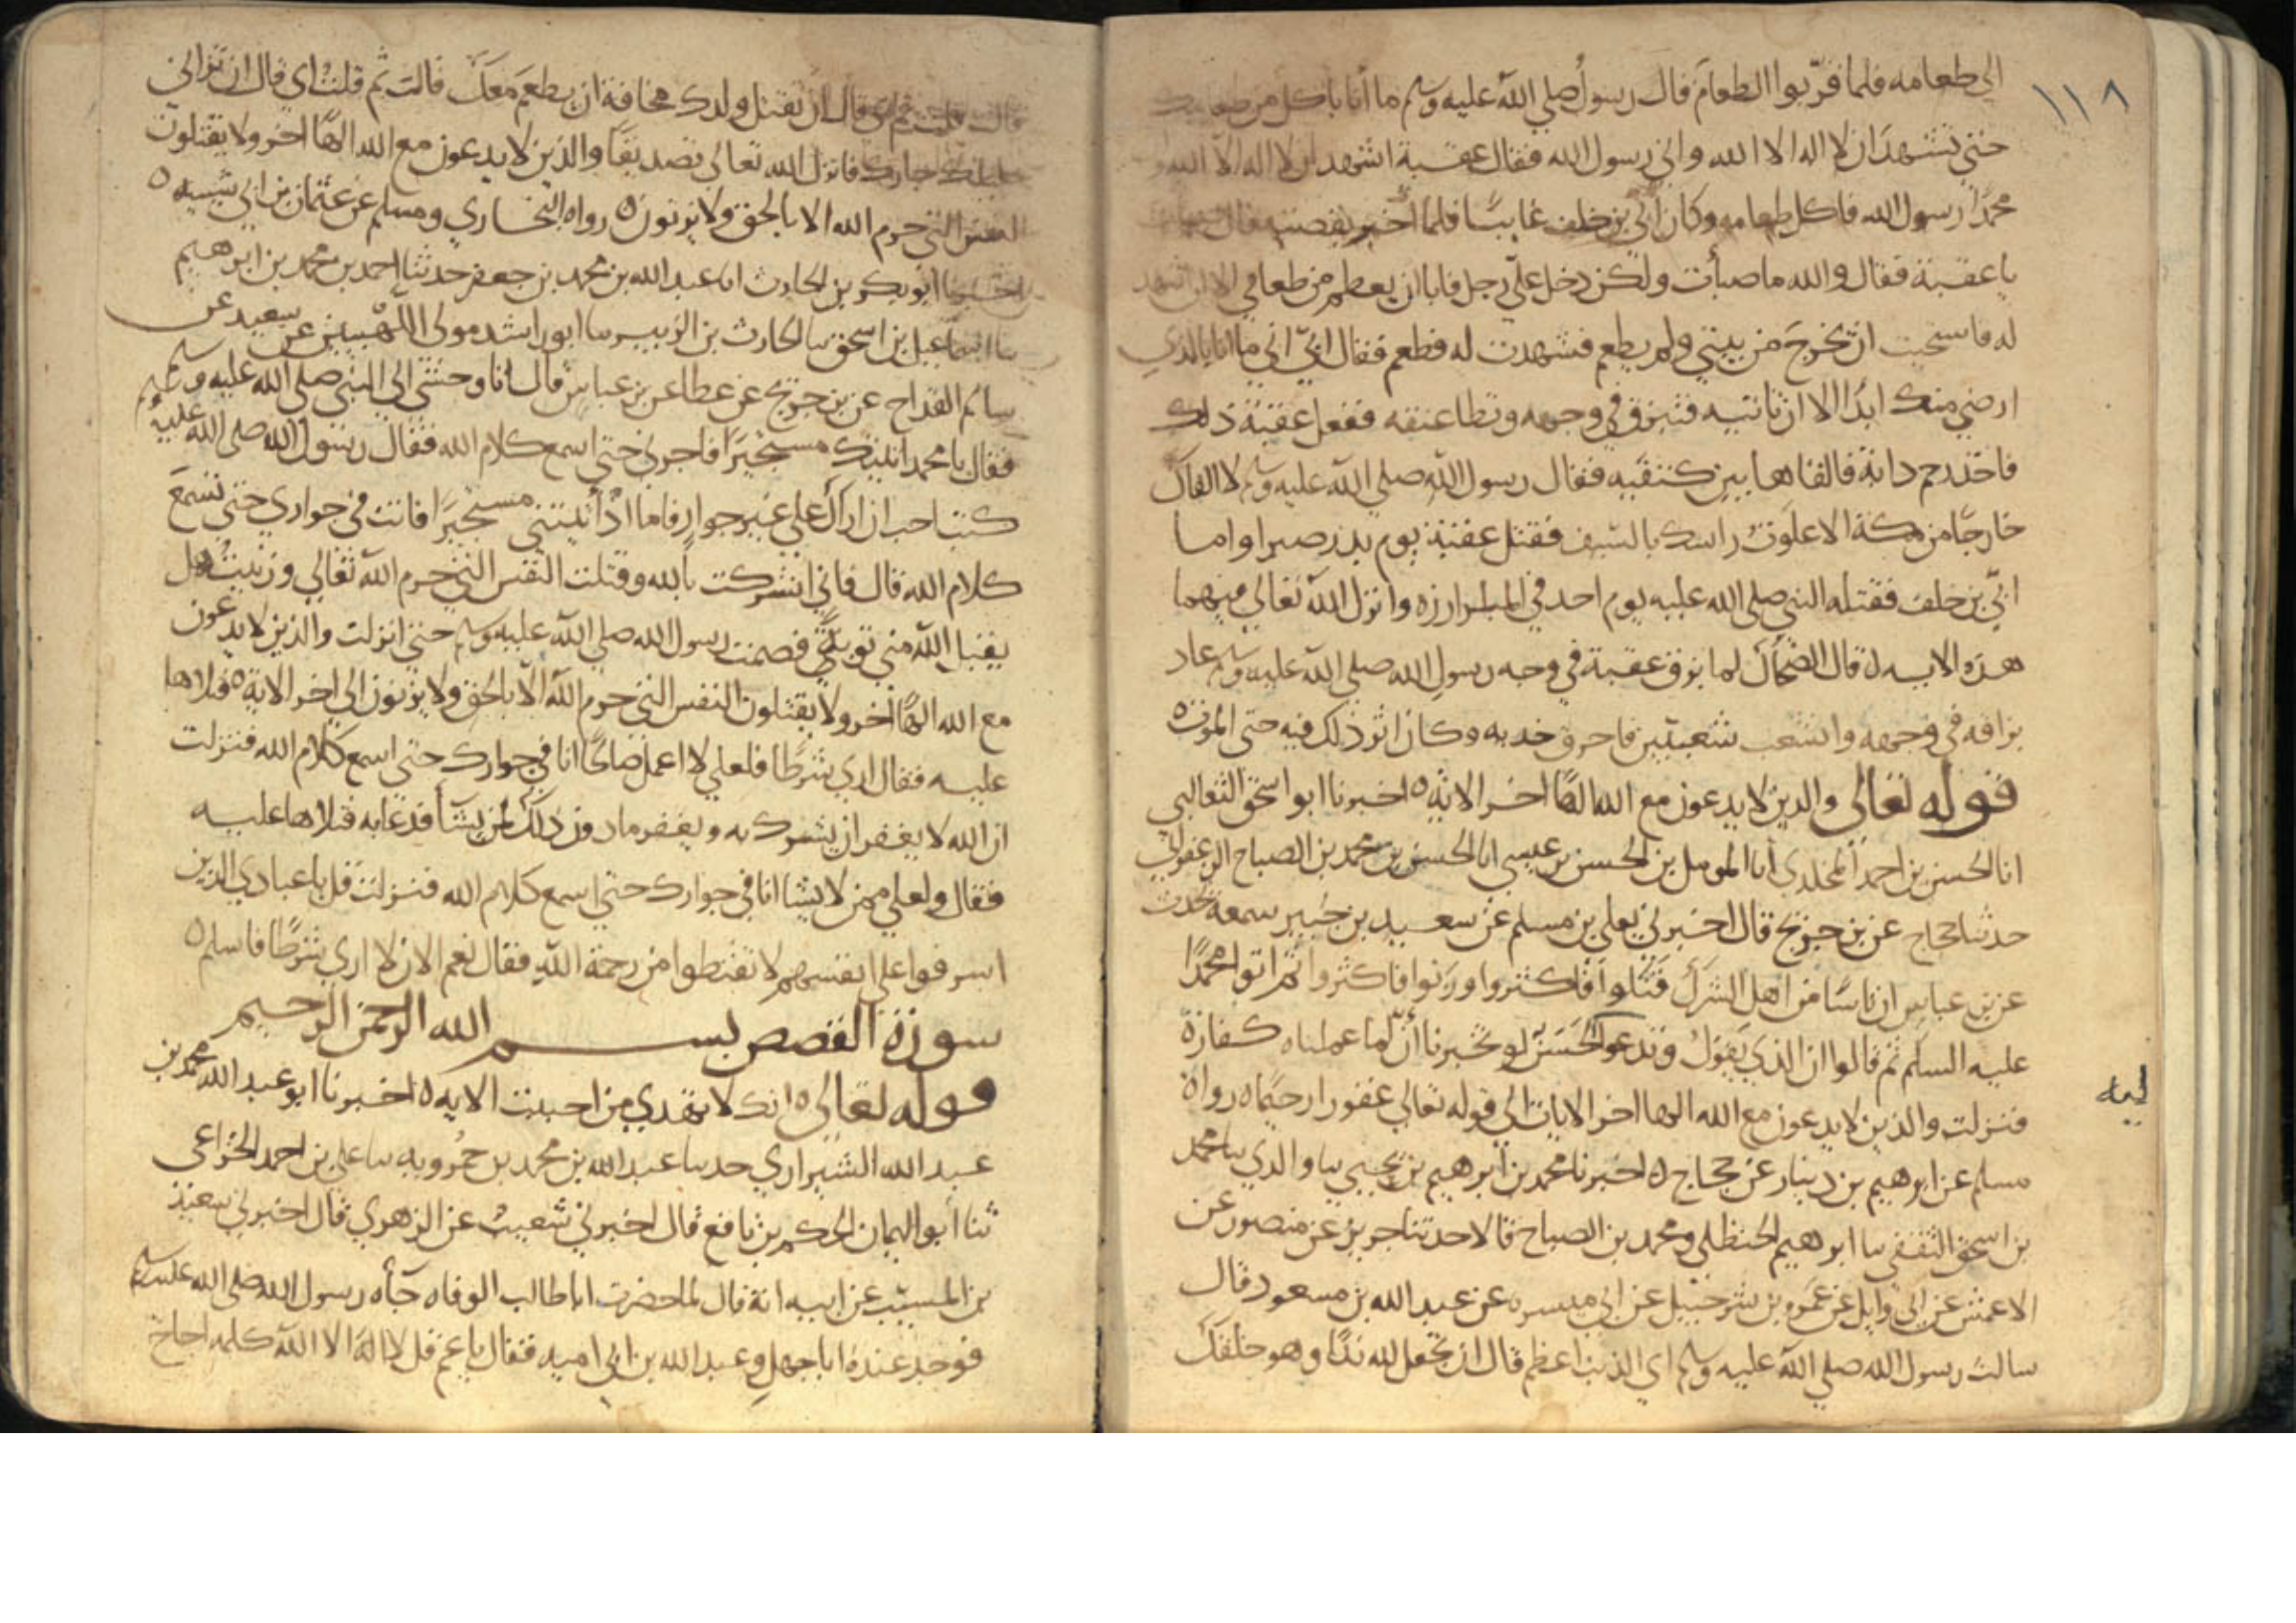 ١١٨
الى طعامه فلما قرّبوا الطعام قال رسول صلي الله عليه وسلم ما أنا باكل من طعامك
حتي تشهد ان لا اله الا الله واني رسول الله فقال عقبة اشهد ان لا اله الا الله و
محمدًا رسول الله فاكل طعامه وكان أبيّ بن خلف غايبًا فلما أخبر بقصته قال صبات
يا عقبة فقال والله ما صبأت ولكن دخل عليّ رجل فابا ان يطعم من طعامي الا ان اشهد
له فاسحيت ان يخرج من بيتي ولم يطعم فشهدت له فطعم فقال ابيّ اني ما انا بالذي
ارضي منك ابدًا الا ان تاتيه فتبزق في وجهه وتطا عنقه ففعل عقبة ذلك
فاخذ رحم دابة فالقاها بين كتفيه فقال رسول الله صلي الله عليه وسلم لا القاك
خارجًا من مكة الا علوت راسك بالسيف فقتل عقبة يوم بدر صبرا واما
ابيّ بن خلف فقتله النبي صلي الله عليه يوم احد في المبارزه وانزل الله تعالي فيهما
هذه الايه ٥ قال الضحاك لما بزق عقبة في وجه رسول الله صلي الله عليه وسلم عاد
بزاقه في وجهه وانشعب شعبتين فاحرق خديه وكان اثر ذلك فيه حتى الموت ٥
قوله تعالى والذين لا يدعون مع الله الهًا اخر الاية ٥ اخبرنا ابو اسحق الثعالبي
انا الحسن بن احمد المخلدي أنا المومل بن الحسن بن عيسي انا الحسن بن محمد بن الصباح الزعفراني
حدثنا حجاج عن بن جريج قال اخبرني يعلي بن مسلم عن سعيد بن جبير سمعه يحدث
عن بن عباس ان ناسًا من اهل الشرك قتلوا فاكثروا وزنوا فاكثروا ثم اتوا محمدًا
عليه السلم ثم قالوا ان الذي يقول وتدعو لحسن لو تخبرنا أنّ لما عملناه كفارة
فنزلت والذين لا يدعون مع الله الها اخر الايات الي قوله تعالي غفورا رحيمًا ٥ رواه
مسلم عن ابرهيم بن دينار عن حجاج ٥ اخبرنا محمد بن ابرهيم بن يحيي نا والدي نا محمد
بن اسحق الثقفي نا ابرهيم الحنظلي ومحمد بن الصباح قالا حدثنا جرير عن منصور عن
الاعمش عن ابي وايل عن عمرو بن شرحبيل عن ابي ميسره عن عبد الله بن مسعود قال
سالت رسول الله صلي الله عليه وسلم اي الذنب اعظم قال ان تجعل لله ندًا وهو خلقك
قالت قلت ثم اي قال ان تقتل ولدك مخافة ان يطعم معك قالت ثم قلت اي قال ان تزاني
حليلة جارك فانزل الله تعالى تصديقًا والذين لا يدعون مع الله الهًا اخر ولا يقتلون
النفس التي حرم الله الا بالحق ولا يزنون ٥ رواه البخاري ومسلم عن عثمان بن ابي شيبه ٥
اخبرنا ابو بكر بن الحارث انا عبد الله بن محمد بن جعفر حدثنا احمد بن محمد بن ابرهيم
نا اسماعيل بن اسحق نا الحارث بن الزبير نا ابو راشد مولى اللهبيين عن سعيد عن
سالم القداح عن بن جريج عن عطا عن بن عباس قال اتا وحشي الي النبي صلي الله عليه وسلم
فقال يا محمد اتيتك مستجيرًا فاجرني حتي اسمع كلام الله فقال رسول الله صلى الله عليه
كنت احب ان اراك علي غير جوار فاما اذ أتيتني مستجيرًا فانت في جواري حتي تسمع
كلام الله قال فاني اشركت بالله وقتلت النفس التي حرم الله تعالي وزنيت هل
يقبل الله مني توبة فصمت رسول الله صلي الله عليه وسلم حتي انزلت والذين لا يدعون
مع الله الهًا اخر ولا يقتلون النفس التي حرم الله الّا بالحق ولا يزنون الي اخر الاية ٥ فتلاها
عليه فقال اري شرطًا فلعلي لا اعمل صالحًا انا في جوارك حتي اسمع كلام الله فنزلت
ان الله لا يغفر ان يشرك به ويغفر ما دون ذلك لمن يشآ فدعا به فتلاها عليه
فقال ولعلي ممن لا يشا انا في جوارك حتي اسمع كلام الله فنزلت قل يا عبادي الذين
اسرفوا علي انفسهم لا تقنطوا من رحمة الله فقال نعم الان لا اري شرطًا فاسلم ٥
سورة القصص بسم الله الرحمن الرحيم
قوله تعالى ٥ انك لا تهدي من احببت الايه ٥ اخبرنا ابو عبد الله محمد بن
عبد الله الشيرازي حدنا عبد الله بن محمد بن حمرويه نا علي بن احمد الخزاعى
ثنا أبو اليمان الحكم بن نافع قال اخبرني شعيب عن الزهري قال اخبرني سعيد
بن المسيّب عن ابيه انه قال لما حضرت ابا طالب الوفاه جآه رسول الله صلى الله عليه وسلم
فوجد عنده ابا جهل وعبد الله بن ابي اميه فقال يا عم قل لا اله الا الله كلمه احاج